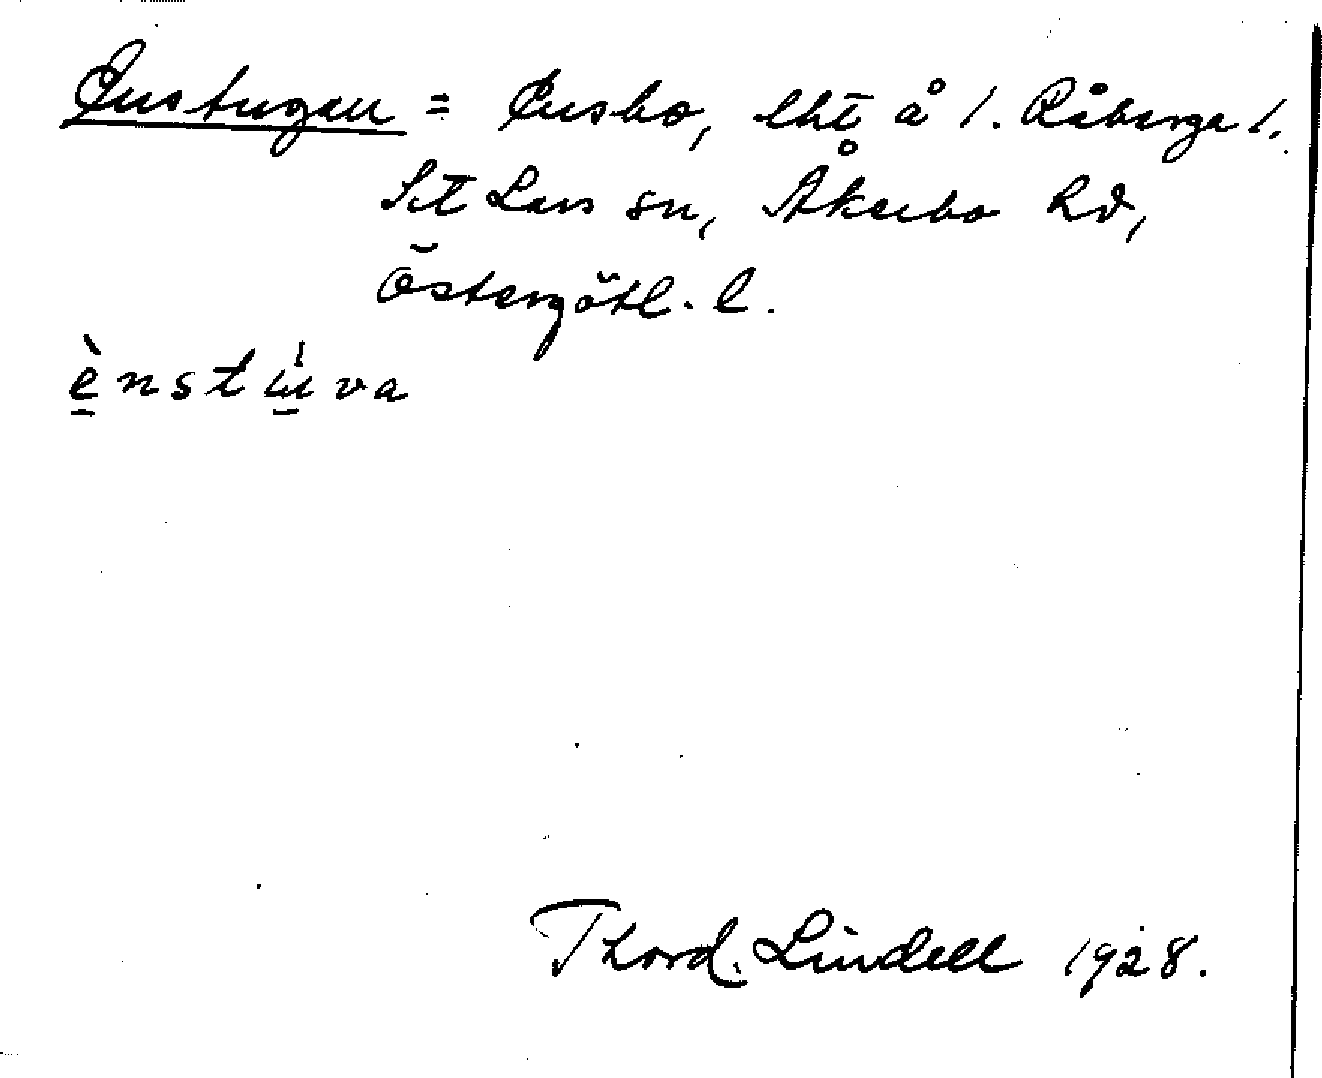 Enstugan = Ensbo, lht å 1. Råberga 1.
S:t Lars sn, Åkerbo hd,
Östergötl. l.
è̱nstụ̀va
Thord Lindell 1928.